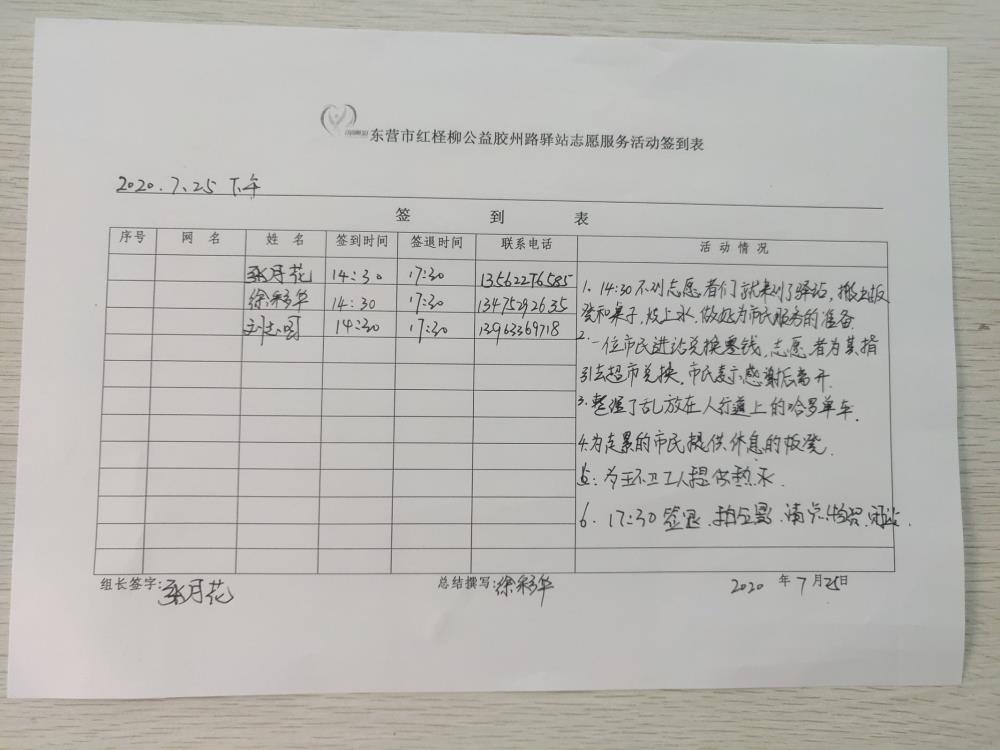 东营市红柽柳公益胶州路驿站志愿服务活动签到表
2020.7.25 下午
签 到 表
序号 网 名 姓 名 签到时间 签退时间 联系电话 活 动 情 况
月花 14:30 17:30 13562276585
徐彩华 14:30 17:30 13475292635
刘志 14:30 17:30 13963369718
1. 14:30不到志愿者们就来到了驿站,搬出板
凳和桌子,烧上水,做好为市民服务的准备.
2.一位市民进站兑换零钱,志愿者为其指
引去超市兑换,市民表示感谢后离开.
3.整理了乱放在人行道上的哈罗单车.
4.为走累的市民提供休息的板凳.
5:为环卫工人提供热水.
6. 17:30签退.拍全景.清点物品.闭站.
组长签字: 月花 总结撰写:徐彩华 2020 年 7 月 25 日